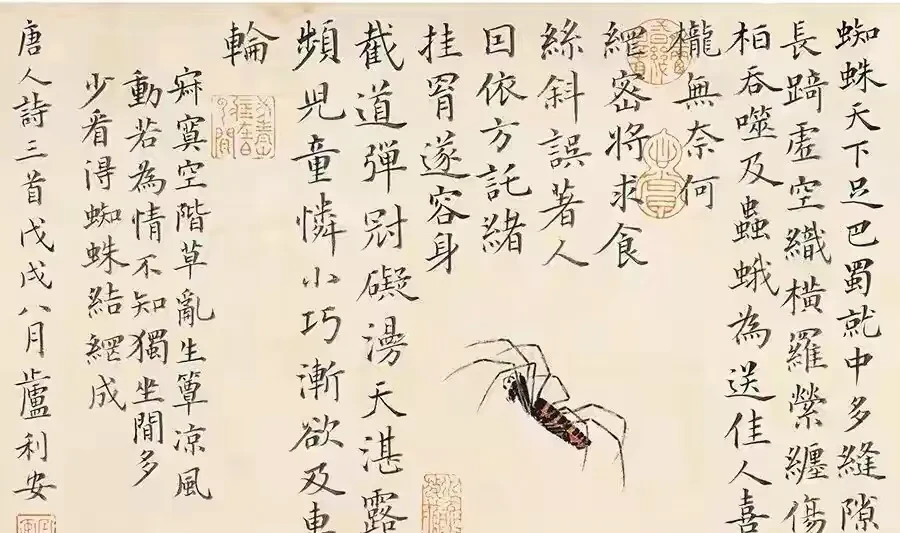 蜘蛛天下足巴蜀就中多縫隙
長踦虛空織橫羅縈纏傷
柏吞噬及蟲蛾為送佳人喜
櫳無奈何
網密將求食
絲斜誤著人
因依方託緒
挂罥遂容身
截道彈冠礙漫天湛露
頻兒童憐小巧漸欲及車
輪
寂寞空階草亂生簟凉風
動若為情不知獨坐閒多
少看得蜘蛛結網成
唐人詩三首戊戌八月盧利安